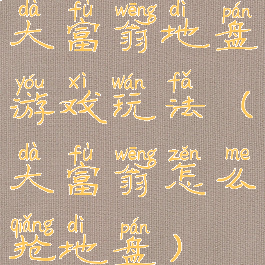 dà fù wēng dì pán
大富翁地盘
yóu xì wán fǎ
游戏玩法（
dà fù wēng zěn me
大富翁怎么
qiǎng dì pán
抢地盘）